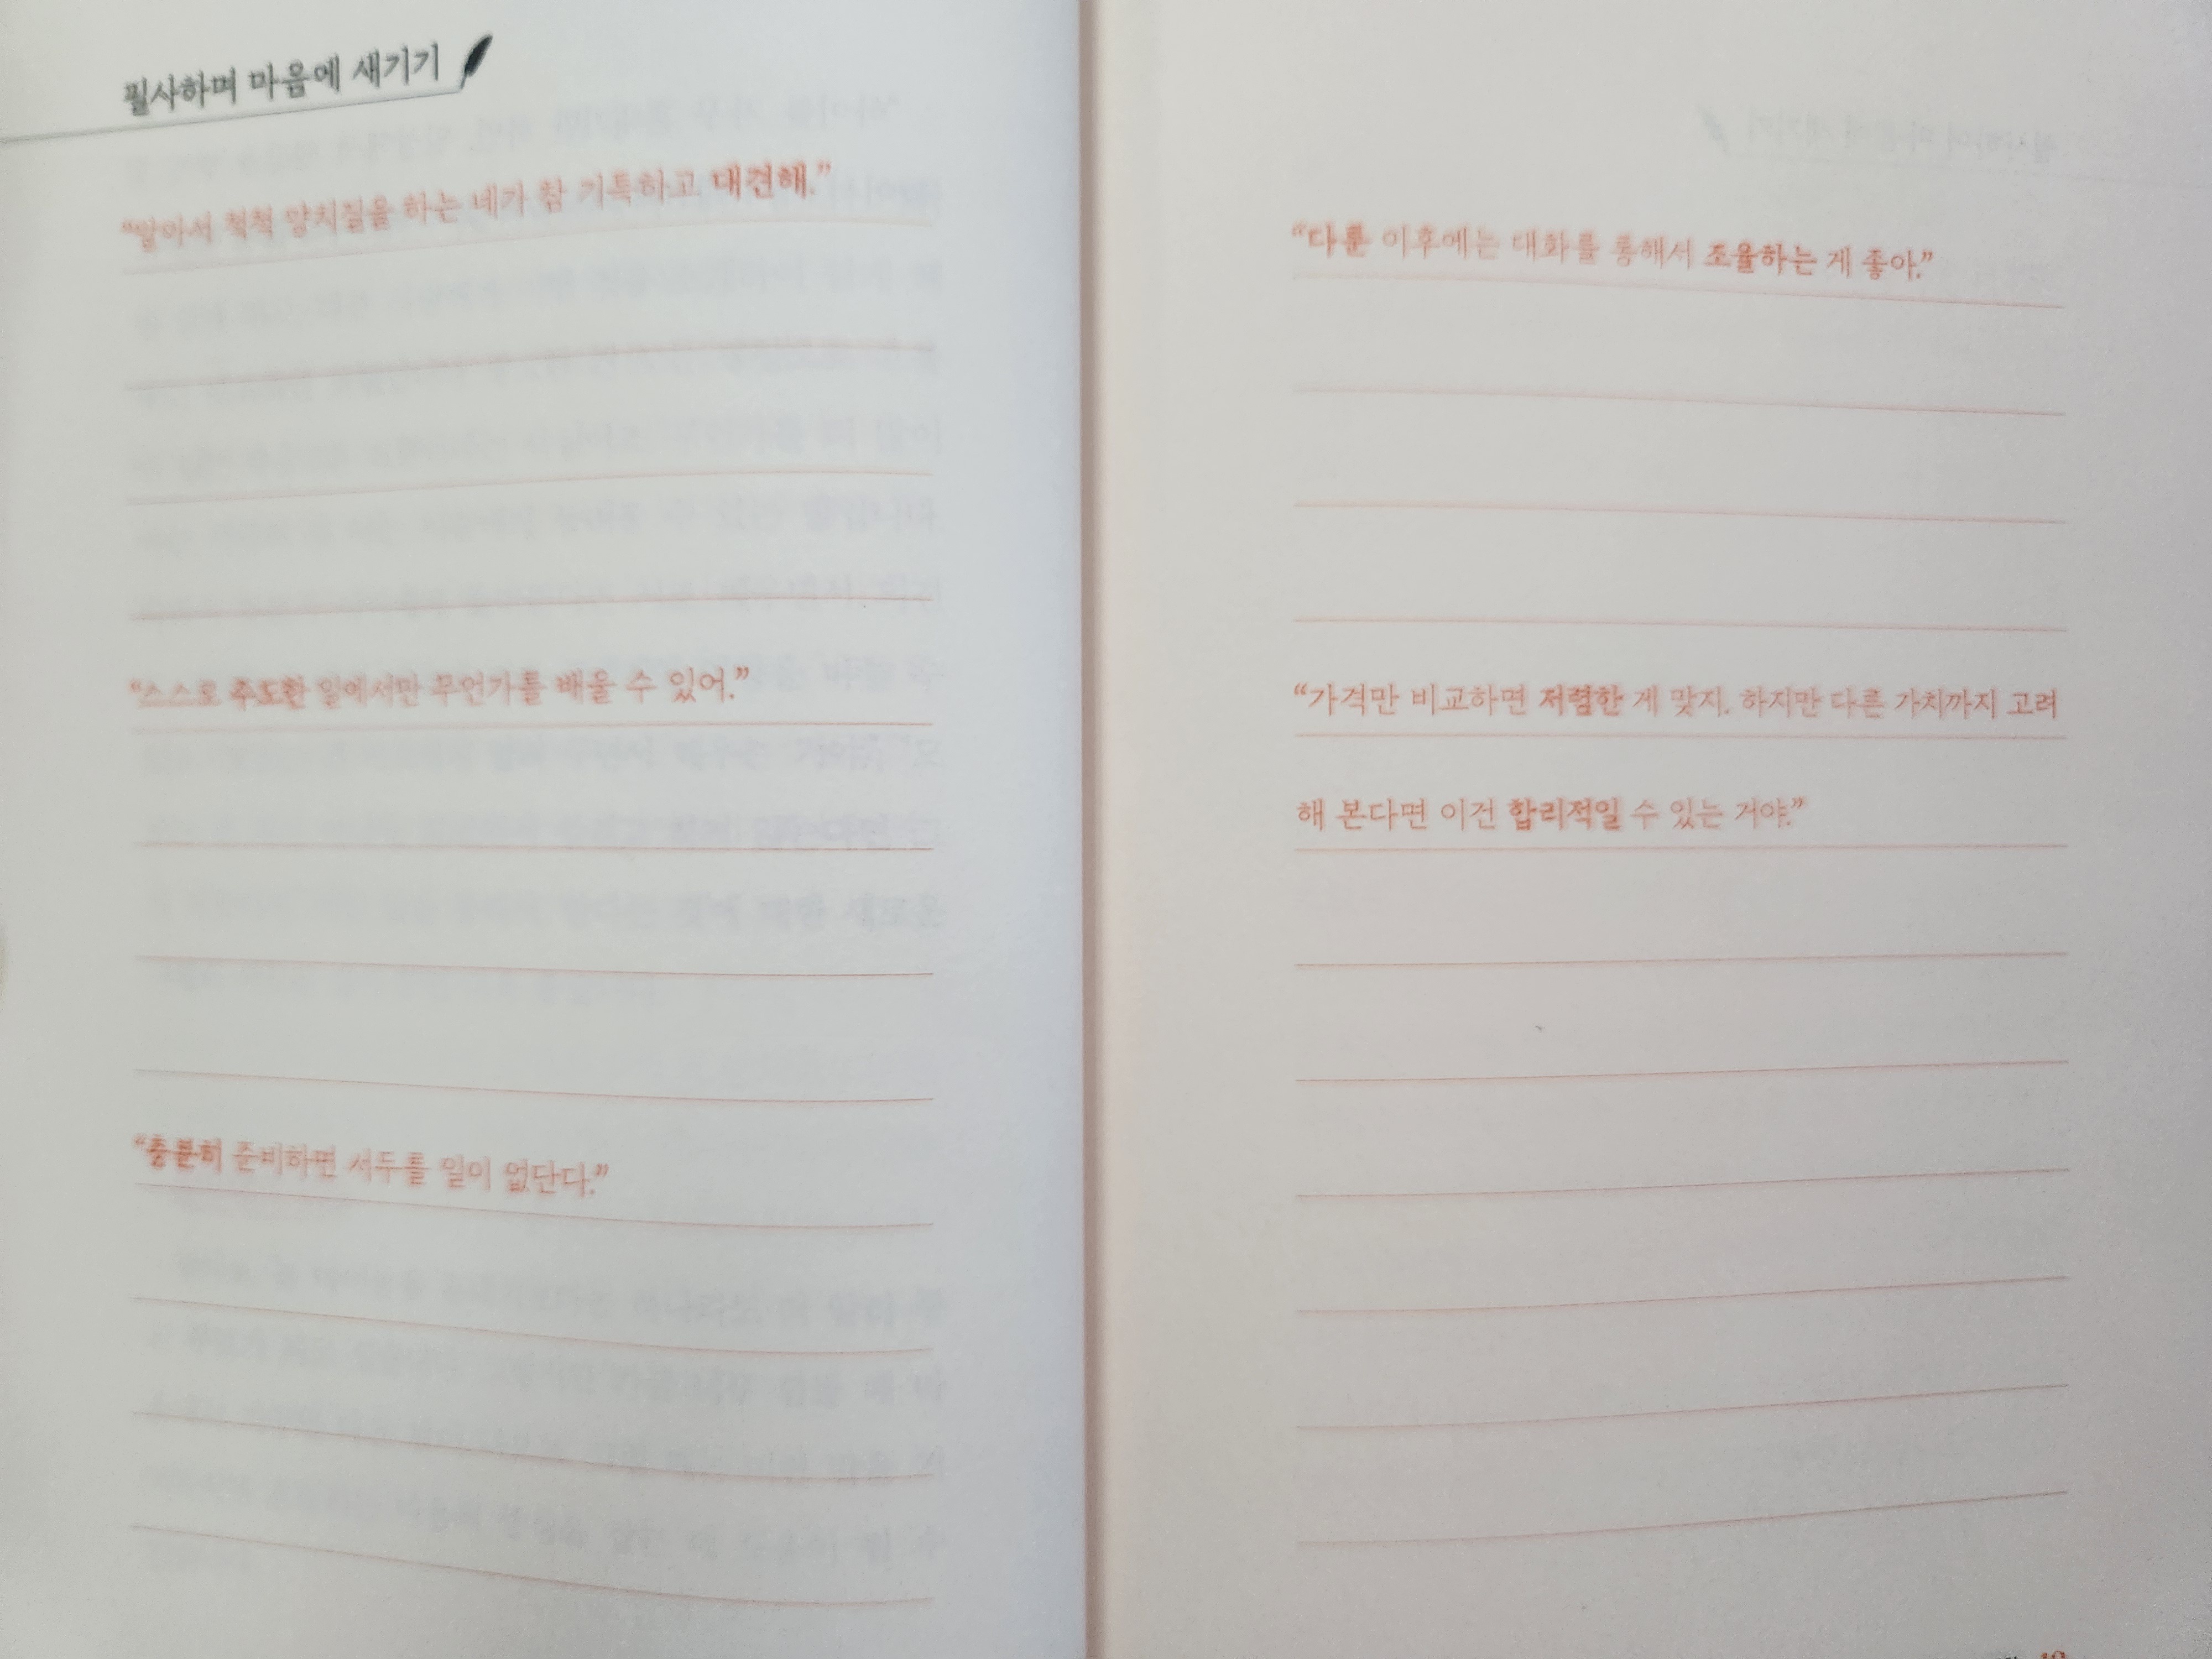 필사하며 마음에 새기기
“알아서 척척 양치질을 하는 네가 참 기특하고 대견해.”
“스스로 주도한 일에서만 무언가를 배울 수 있어.”
“충분히 준비하면 서두를 일이 없단다.”
“다툰 이후에는 대화를 통해서 조율하는 게 좋아.”
“가격만 비교하면 저렴한 게 맞지. 하지만 다른 가치까지 고려
해 본다면 이건 합리적일 수 있는 거야.”